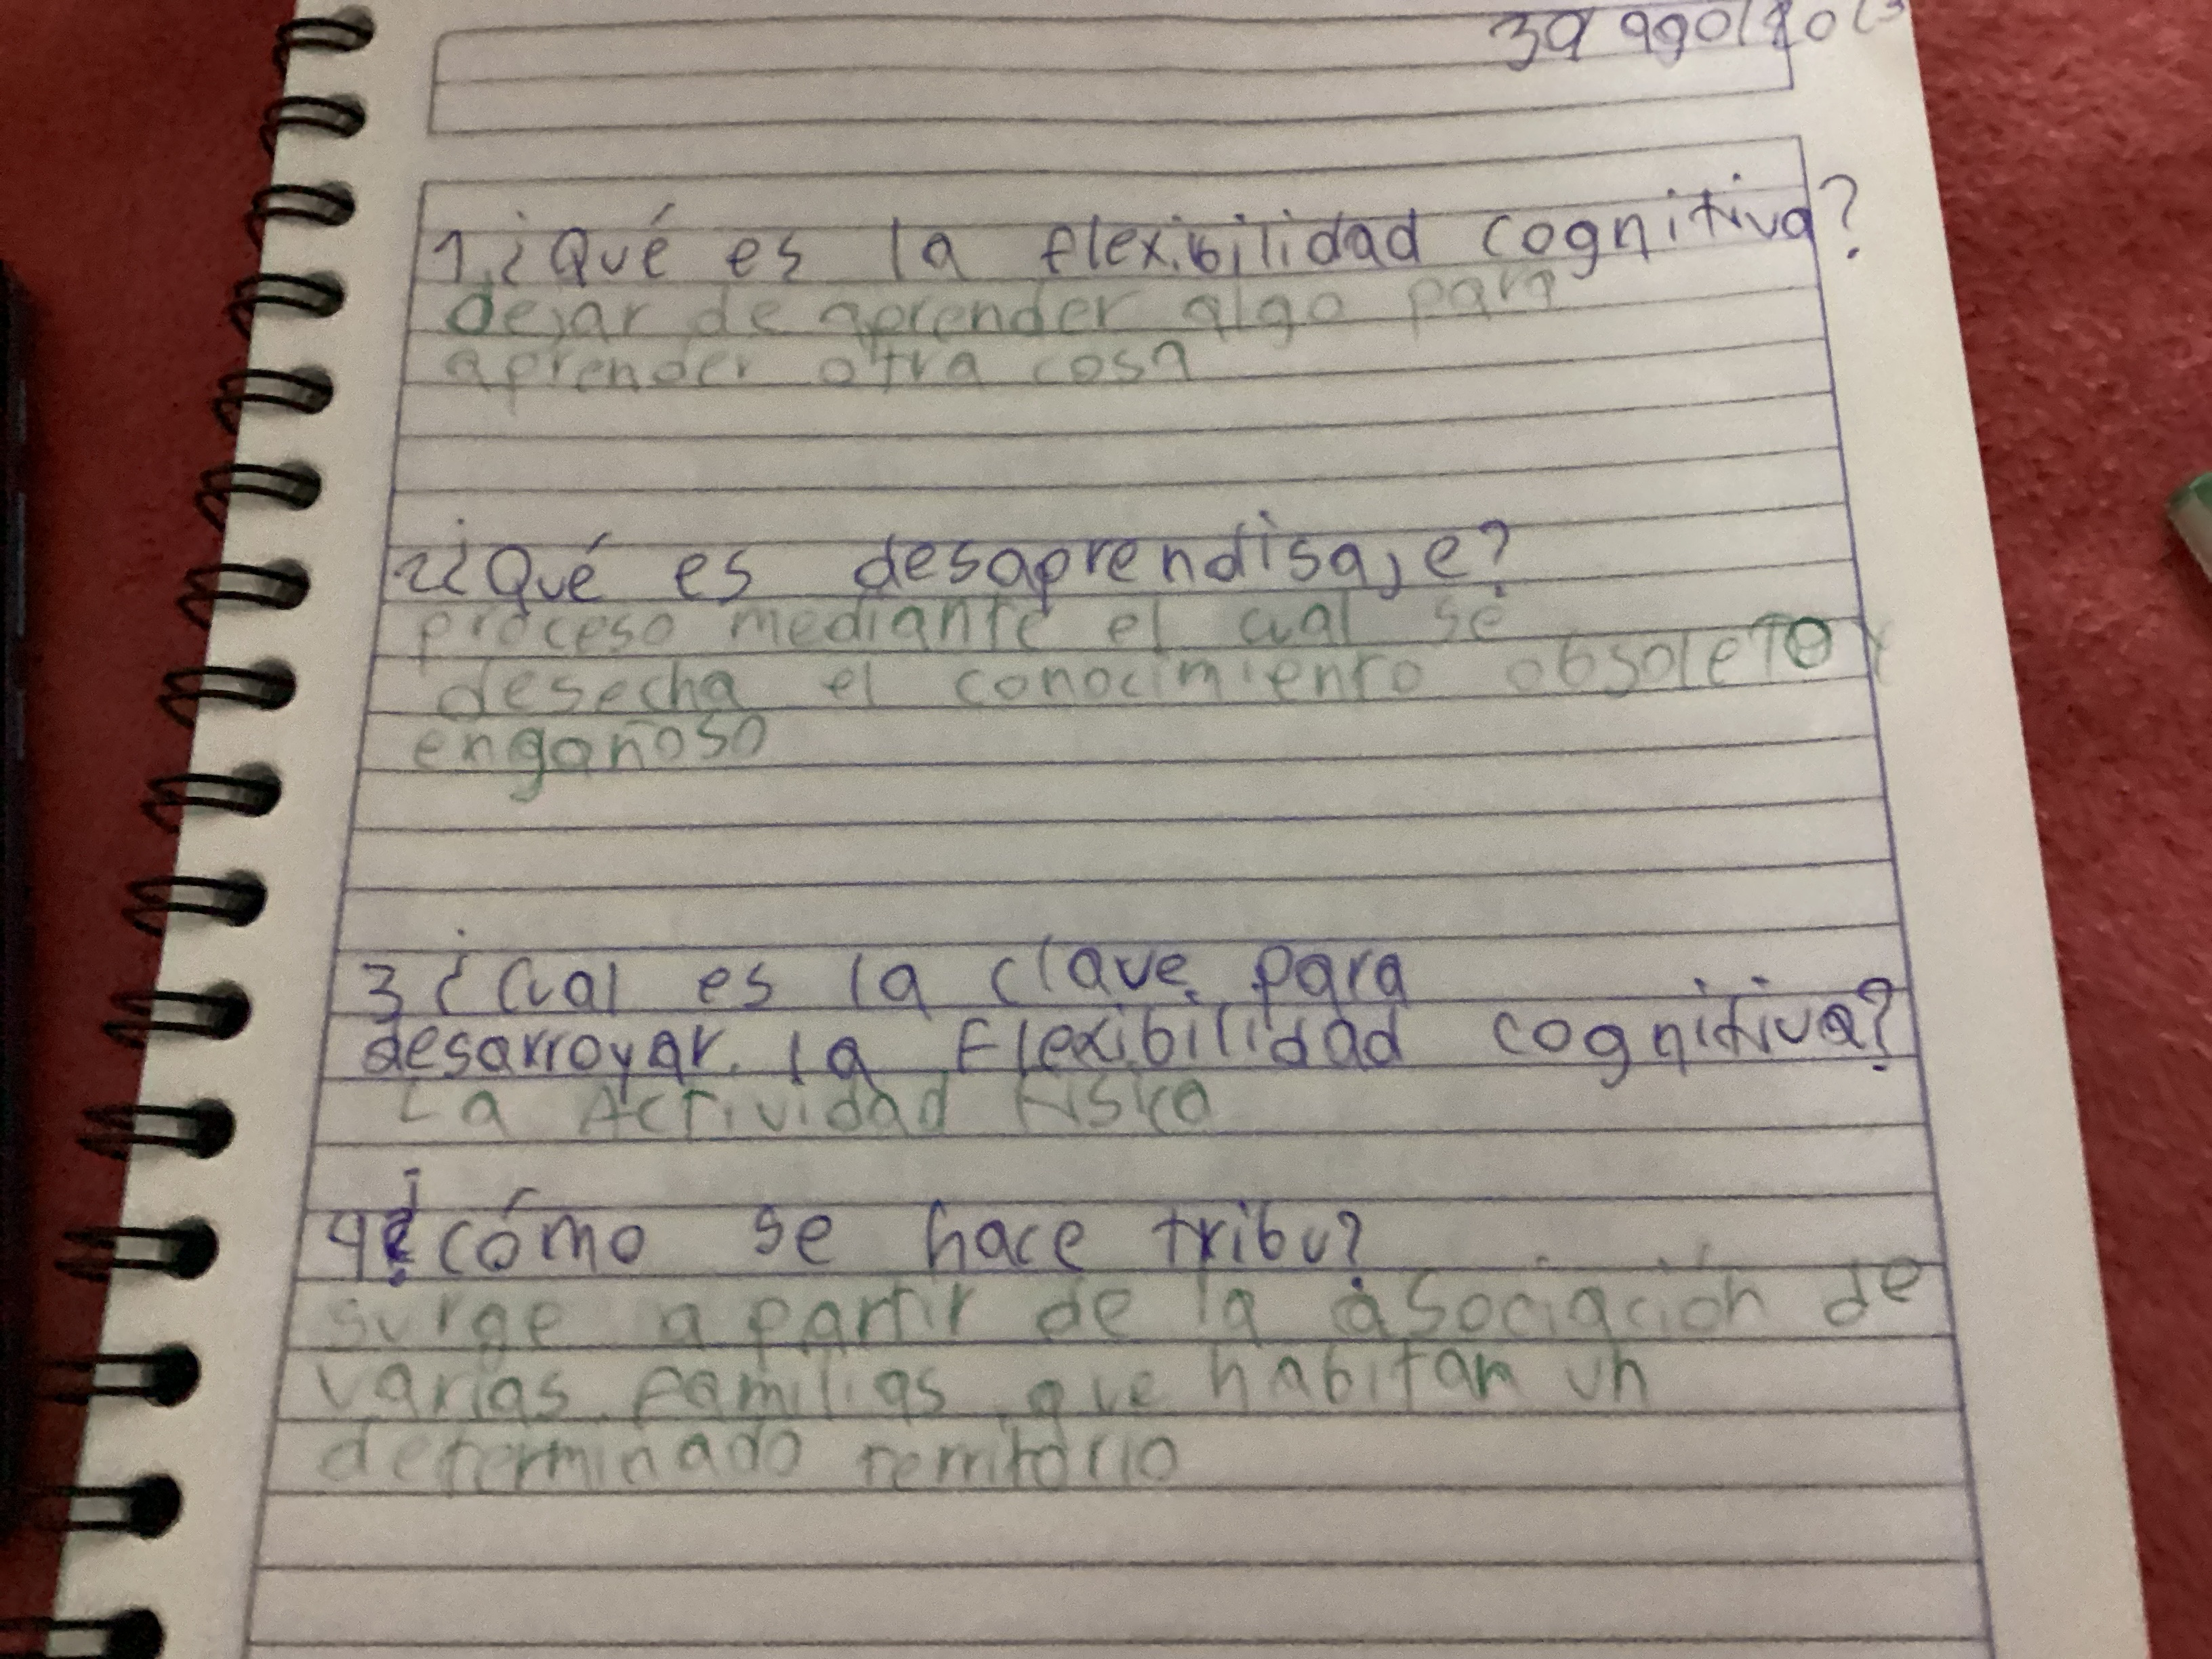 1.¿Qué es la flexibilidad cognitiva?
Dejar de aprender algo para
aprender otra cosa
2¿Qué es desaprendisaje?
proceso mediante el cual se
desecha el conocimiento obsoleto y
engañoso
3¿Cual es la clave para
desarroyar la Flexibilidad cognitiva?
La Actividad Fisica
4¿cómo se hace tribu?
surge a partir de la asociación de
varias familias que habitan un
determinado territorio